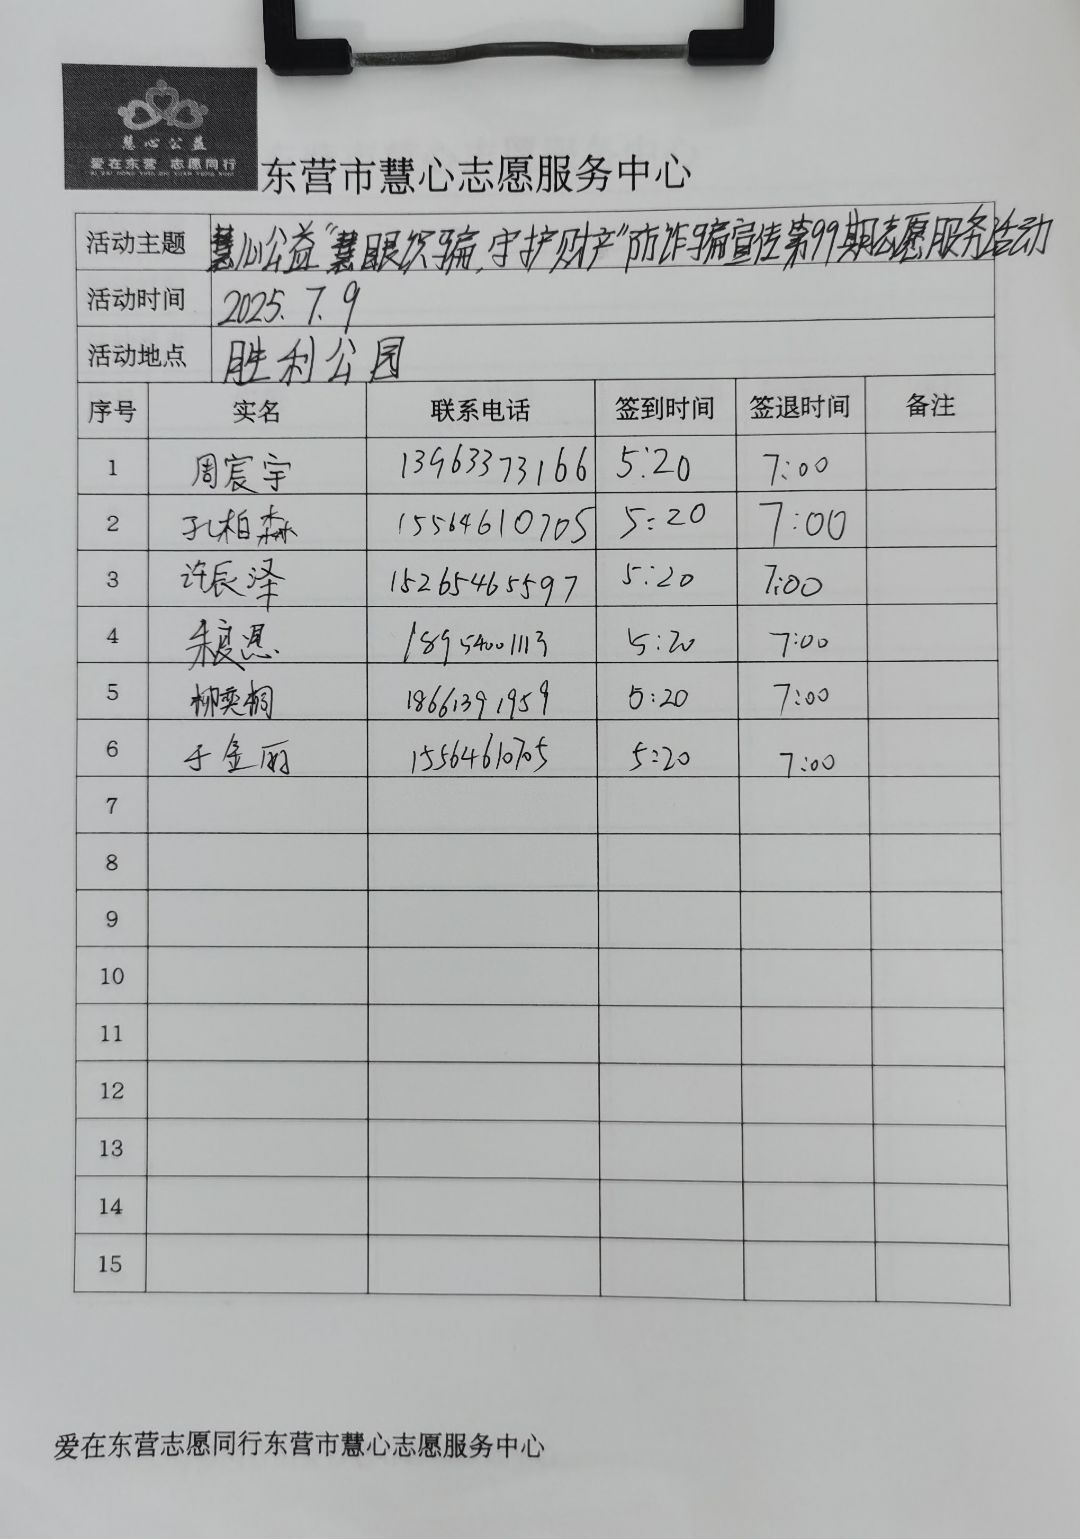 慧心公益
爱在东营 志愿同行
AI ZAI DONG YING ZHI YUAN TONG XING
东营市慧心志愿服务中心
活动主题 慧心公益“慧眼识骗,守护财产”防诈骗宣传第99期志愿服务活动
活动时间 2025.7.9
活动地点 胜利公园
序号 实名 联系电话 签到时间 签退时间 备注
1 周宸宇 13963373166 5:20 7:00
2 孔柏森 15564610705 5:20 7:00
3 许辰泽 15265465597 5:20 7:00
4 18954001113 5:20 7:00
5 柳奕桐 18661391959 5:20 7:00
6 于金丽 15564610705 5:20 7:00
7
8
9
10
11
12
13
14
15
爱在东营志愿同行东营市慧心志愿服务中心